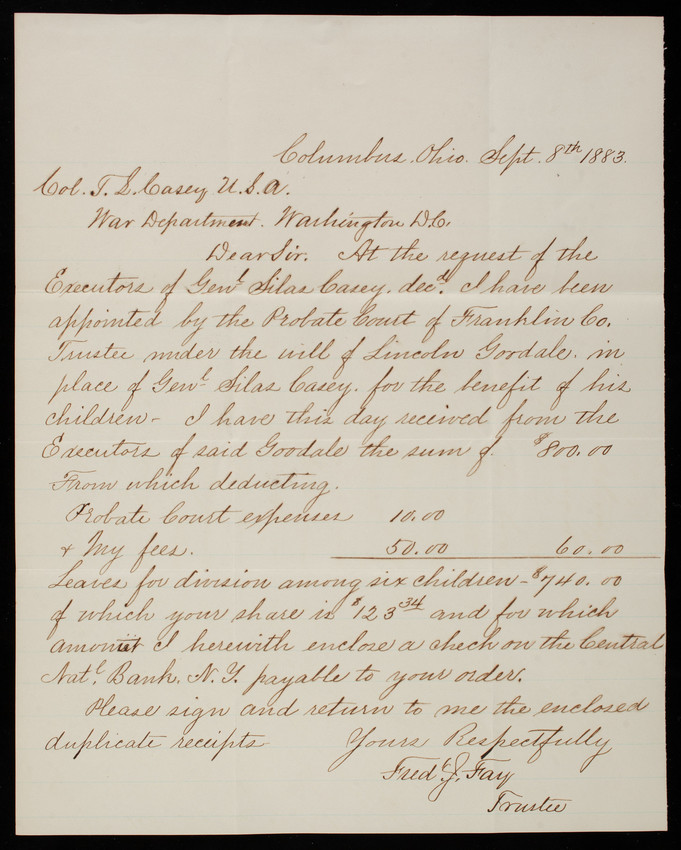 Columbus. Ohio. Sept. 8th 1883.
Col. T. L. Casey U.S.A.
War Department. Washington D.C.
Dear Sir. At the request of the
Executors of Genl. Silas Casey. decd. I have been
appointed by the Probate Court of Franklin Co.
Trustee under the will of Lincoln Goodale. in
place of Genl. Silas Casey. for the benefit of his
children - I have this day received from the
Executors of said Goodale the sum of $800.00
From which deducting.
Probate Court expenses 10.00
+ My fees. 50.00 60.00
Leaves for division among six children - $740.00
of which your share is $123 34 and for which
amount I herewith enclose a check on the Central
Natl. Bank. N.Y. payable to your order.
Please sign and return to me the enclosed
duplicate receipts - Yours Respectfully
Fredk. J. Fay
Trustee